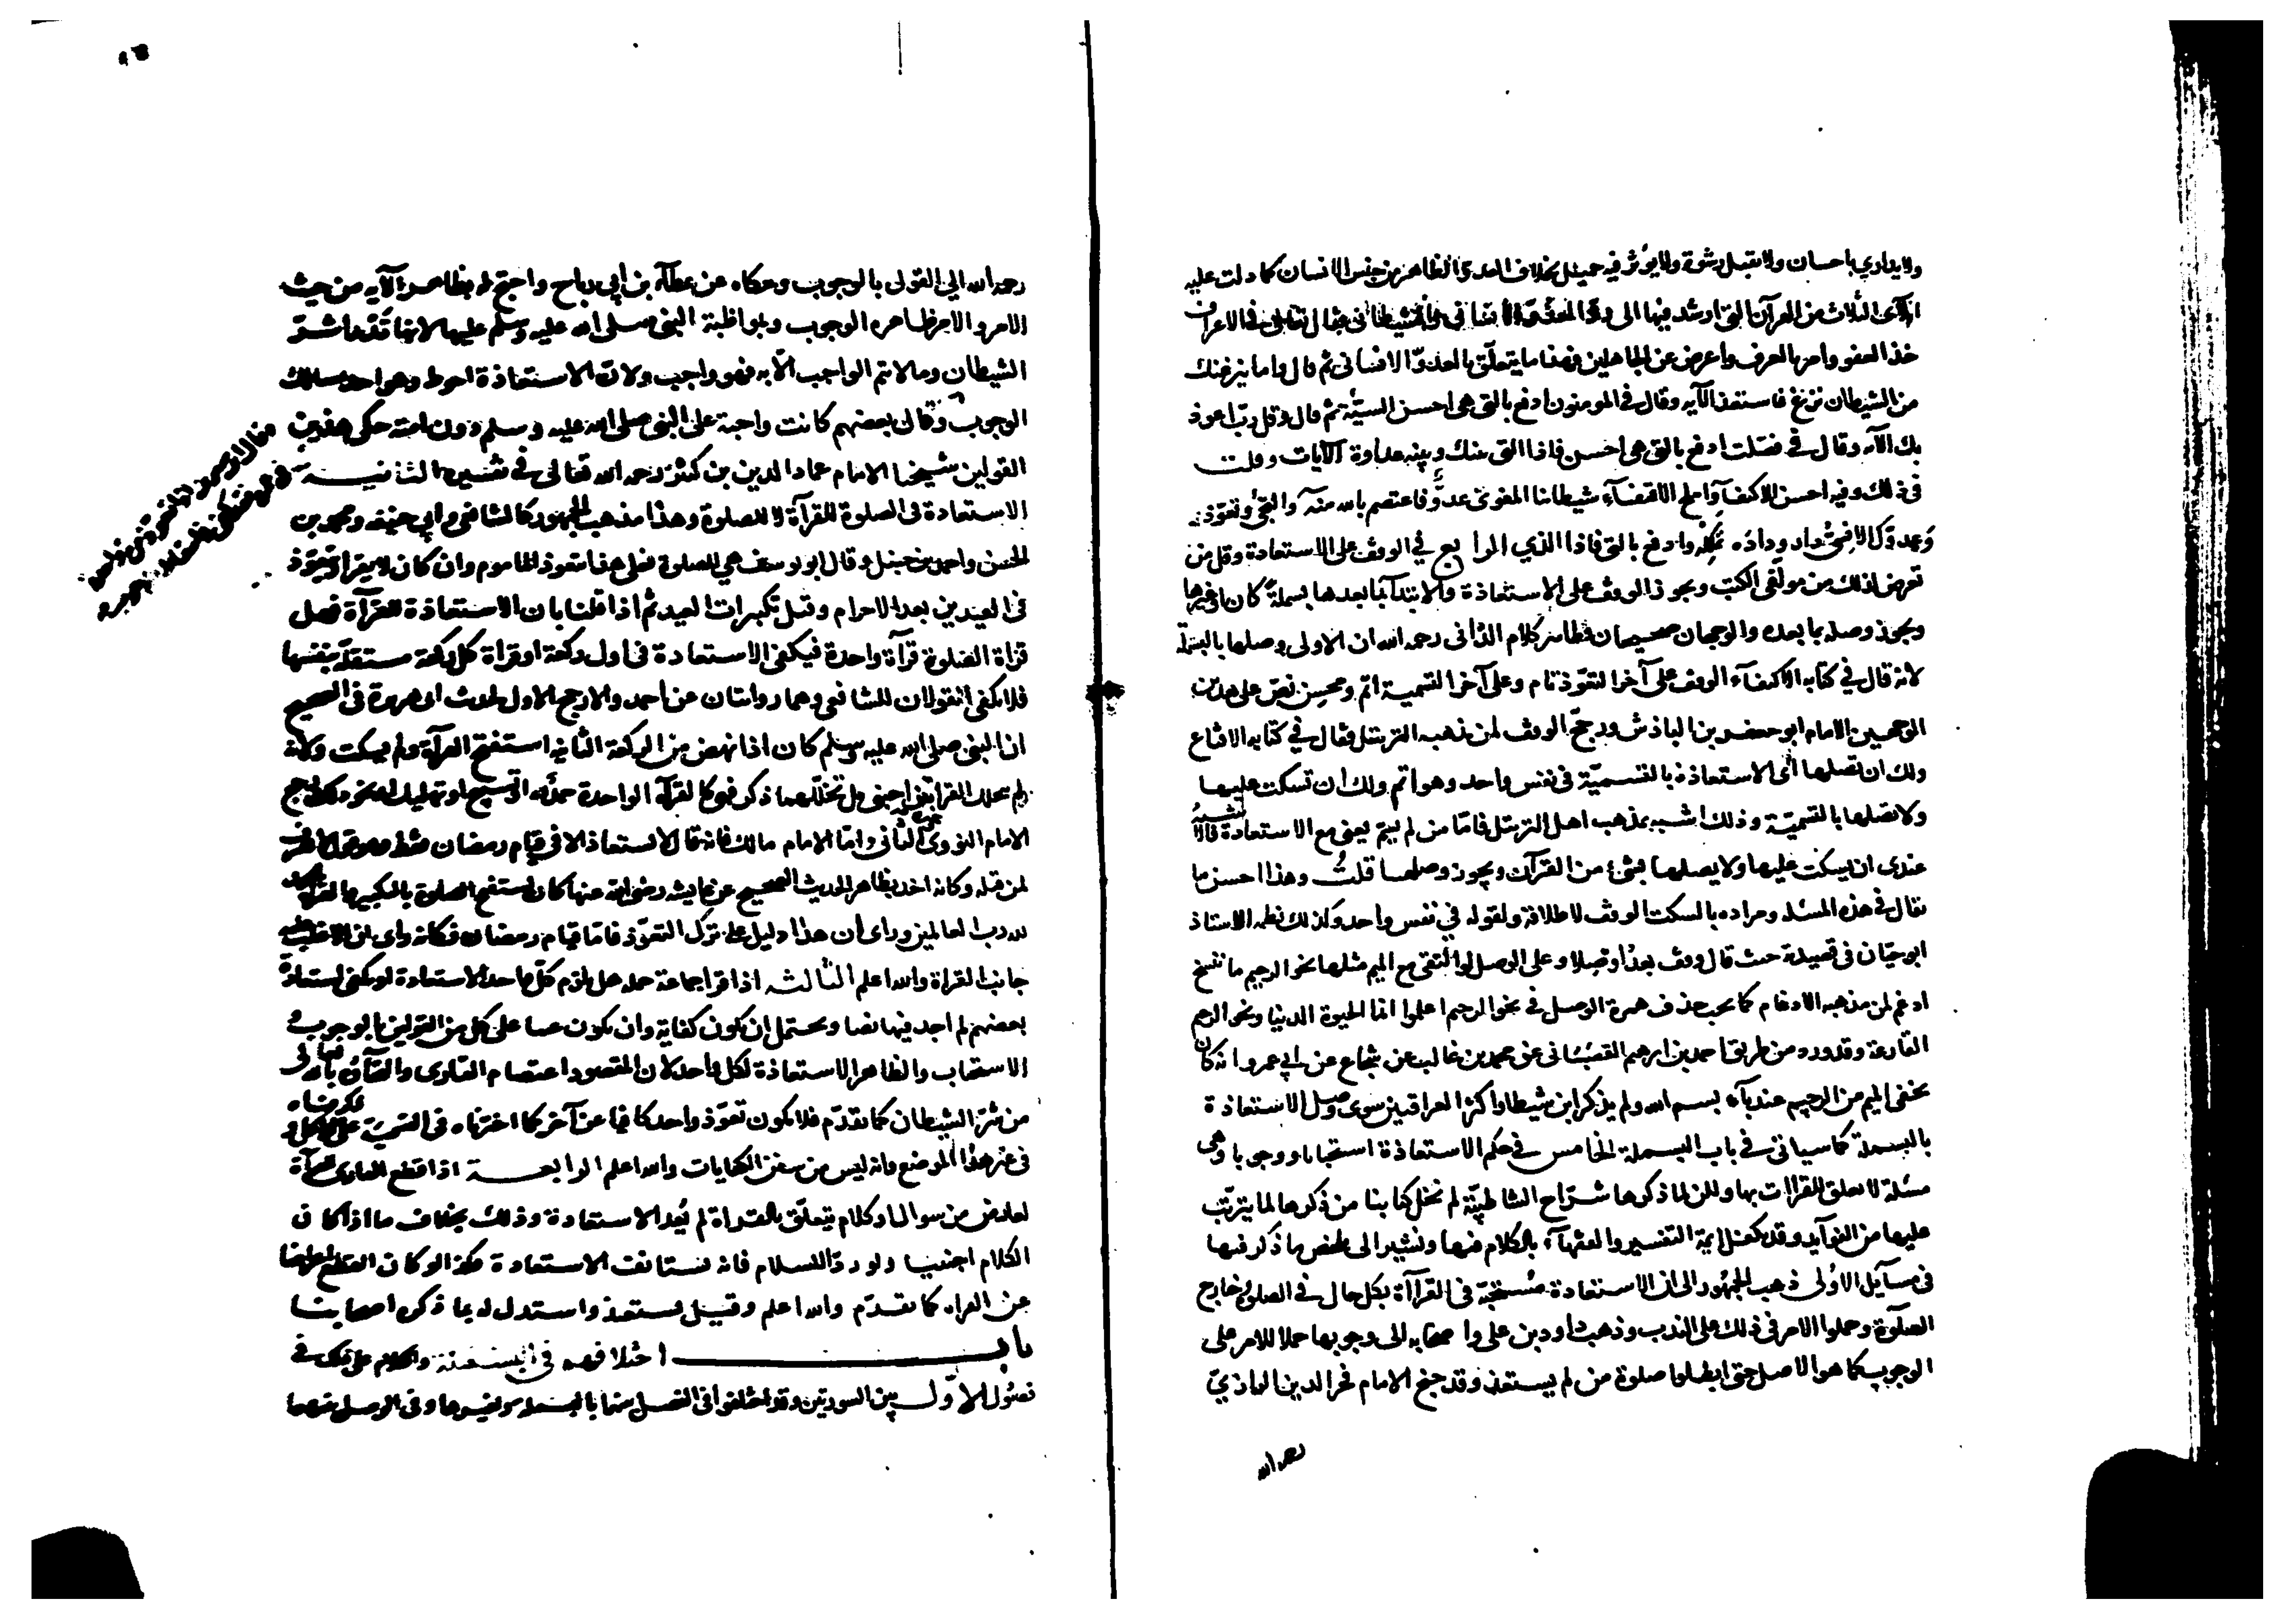 ولا يداري باحسان ولا يقبل رشوة ولا يؤثر فيه جميل بخلاف العدو الظاهر من جنس الانسان كما دلت عليه
الآى الثلاث من القرآن التي ارشد فيها الى رد العدو الانساني والشيطاني فقال تعالى في الاعراف
خذ العفو وامر بالعرف واعرض عن الجاهلين فهذا ما يتعلق بالعدو الانساني ثم قال واما ينزغنك
من الشيطان نزغ فاستعذ الآيه وقال في المومنون ادفع بالتي هي احسن السيئة ثم قال وقل رب اعوذ
بك الآيه وقال في فصلت ادفع بالتي هي احسن فاذا الذي بينك وبينه عداوة الآيات وقلت
في ذلك وفيه احسن الاكتفاء واملح الاقتفاء شيطاننا المغوي عدو فاعتصم بالله منه والتجئ وتعوذ
وعدوك الانسي دار وداده تملكه وادفع بالتي فاذا الذي الرابع في الوقف على الاستعاذة وقل من
تعرض لذلك من مولفي الكتب ويجوز الوقف على الاستعاذة والابتداء بما بعدها بسملة كان او غيرها
ويجوز وصله بما بعده والوجهان صحيحان وظاهر كلام الداني رحمه الله ان الاولى وصلها بالبسملة
لانه قال في كتابه الاكتفاء الوقف على آخر التعوذ تام وعلى آخر التسمية اتم وممن نص على هذين
الوجهين الامام ابو جعفر بن الباذش ورجح الوقف لمن مذهبه الترتيل فقال في كتابه الاقناع
ولك ان تصلها اى الاستعاذة بالتسمية في نفس واحد وهو اتم ولك ان تسكت عليها
ولا تصلها بالتسمية وذلك اشبه بمذهب اهل الترتيل فاما من لم يسم يعني مع الاستعاذة فالاشبه
عندى ان يسكت عليها ولا يصلها بشئ من القرآن ويجوز وصلها قلت وهذا احسن ما
يقال في هذه المسئله ومراده بالسكت الوقف لاطلاقه ولقوله في نفس واحد وكذلك نظمه الاستاذ
ابو حيان في قصيدته حيث قال وقف بعد او صلا وعلى الوصل لو التقى مع الميم مثلها نحو الرجيم ما ننسخ
ادغم لمن مذهبه الادغام كما يجب حذف همزة الوصل في نحو الرجيم اعلموا انما الحيوة الدنيا ونحو الرجيم
القارعة وقد ورد من طريق احمد بن ابرهيم القصباني عن محمد بن غالب عن شجاع عن ابي عمرو انه كان
يخفى الميم من الرجيم عند باء بسم الله ولم يذكر ابن شيطا واكثر العراقيين سوى وصل الاستعاذة
بالبسملة كما سياتي في باب البسملة الخامس في حكم الاستعاذة استحبابا ووجوبا وهي
مسئلة لا تعلق للقراات بها ولكن لما ذكرها شراح الشاطبية لم نخل كتابنا من ذكرها لما يترتب
عليها من الفوآيد وقد تكفل ايمة التفسير والفقهآء بالكلام فيها ونشير الى ملخص ما ذكر فيها
في مسآيل الاولى ذهب الجمهور الى ان الاستعاذة مستحبة في القراآة بكل حال في الصلوة وخارج
الصلوة وحملوا الامر في ذلك على الندب وذهب داود بن علي واصحابه الى وجوبها حملا للامر على
الوجوب كما هو الاصل حتى ابطلوا صلوة من لم يستعذ وقد جنح الامام فخر الدين الرازي
رحمه الله
رحمه الله الى القول بالوجوب وحكاه عن عطآء بن ابي رباح واحتج له بظاهر الآيه من حيث
الامر والامر ظاهره الوجوب وبمواظبة النبي صلى الله عليه وسلم عليها لانها تدرأ شر
الشيطان وما لا يتم الواجب الا به فهو واجب ولان الاستعاذة احوط وهو احد مسالك
الوجوب وقال بعضهم كانت واجبة على النبي صلى الله عليه وسلم دون امته حكى هذين
القولين شيخنا الامام عماد الدين بن كثير رحمه الله تعالى في تفسيره الثانيـة
الاستعاذة في الصلوة للقرآة لا للصلوة وهذا مذهب الجمهور كالشافعي وابي حنيفه ومحمد بن
الحسن واحمد بن حنبل وقال ابو يوسف هي للصلوة فعلى هذا يتعوذ الماموم وان كان لا يقرا ويتعوذ
في العيدين بعد الاحرام وقبل تكبيرات العيد ثم اذا قلنا بان الاستعاذة للقرآة فهل
قراة الصلوة قرآة واحدة فيكفي الاستعاذة في اول ركعة او قراة كل ركعة مستقلة بنفسها
فلا يكفي قولان للشافعي وهما روايتان عن احمد والارجح الاول لحديث ابي هريرة في الصحيح
ان النبي صلى الله عليه وسلم كان اذا نهض من الركعة الثانيه استفتح القرآة ولم يسكت ولانه
لم يتخلل القراتين اجنبي بل تخللهما ذكر فهي كالقرآة الواحدة حمد لله او تسبيح او تهليل او نحو ذلك ورجح
الامام النووي وغيره الثاني واما الامام مالك فانه قال لا يستعاذ الا في قيام رمضان فقط وهو قول لا يعرف
لمن قبله وكانه اخذ بظاهر الحديث الصحيح عن عايشه رضي الله عنها كان يستفتح الصلوة بالتكبير والقراة بالحمد
لله رب العالمين وراى ان هذا دليل على ترك التعوذ فاما قيام رمضان فكانه راى ان الاغلب عليه
جانب القراة والله اعلم الثالثه اذا قرا جماعة جملة هل يلزم كل واحد الاستعاذة او تكفي استعاذة
بعضهم لم اجد فيها نصا ويحتمل ان تكون كفاية وان تكون عينا على كل من القولين بالوجوب و
الاستحباب والظاهر الاستعاذة لكل واحد لان المقصود اعتصام القارى والتجآؤه بالله تعالى
من شر الشيطان كما تقدم فلا يكون تعوذ واحد كافيا عن آخر كما اخترناه في التسمية على الاكل و ذكرناه
في غير هذا الموضع وانه ليس من سنن الكفايات والله اعلم الرابعـة اذا قطع القارى القرآة
لعارض من سوال او كلام يتعلق بالقراة لم يعد الاستعاذة وذلك بخلاف ما اذا كان
الكلام اجنبيا ولو رد السلام فانه يستانف الاستعاذة وكذا لو كان القطع اعراضا
عن القراه كما تقدم والله اعلم وقيل يستعيذ واستدل له بما ذكره اصحابنا
باب اختلافهم في البسملة والكلام على ذلك في
فصول الاول بين السورتين وقد اختلفوا في الفصل بينهما بالبسمله وبغيرها وفي الوصل بينهما